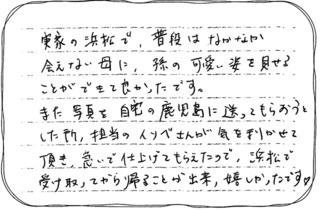 実家の浜松で、普段はなかなか
会えない母に、孫の可愛い姿を見せる
ことができて良かったです。
また写真を自宅の鹿児島に送ってもらおうと
した所、担当のイソベさんが気を利かせて
頂き、急いで仕上げてもらえたので、浜松で
受け取ってから帰ることが出来、嬉しかったです♡